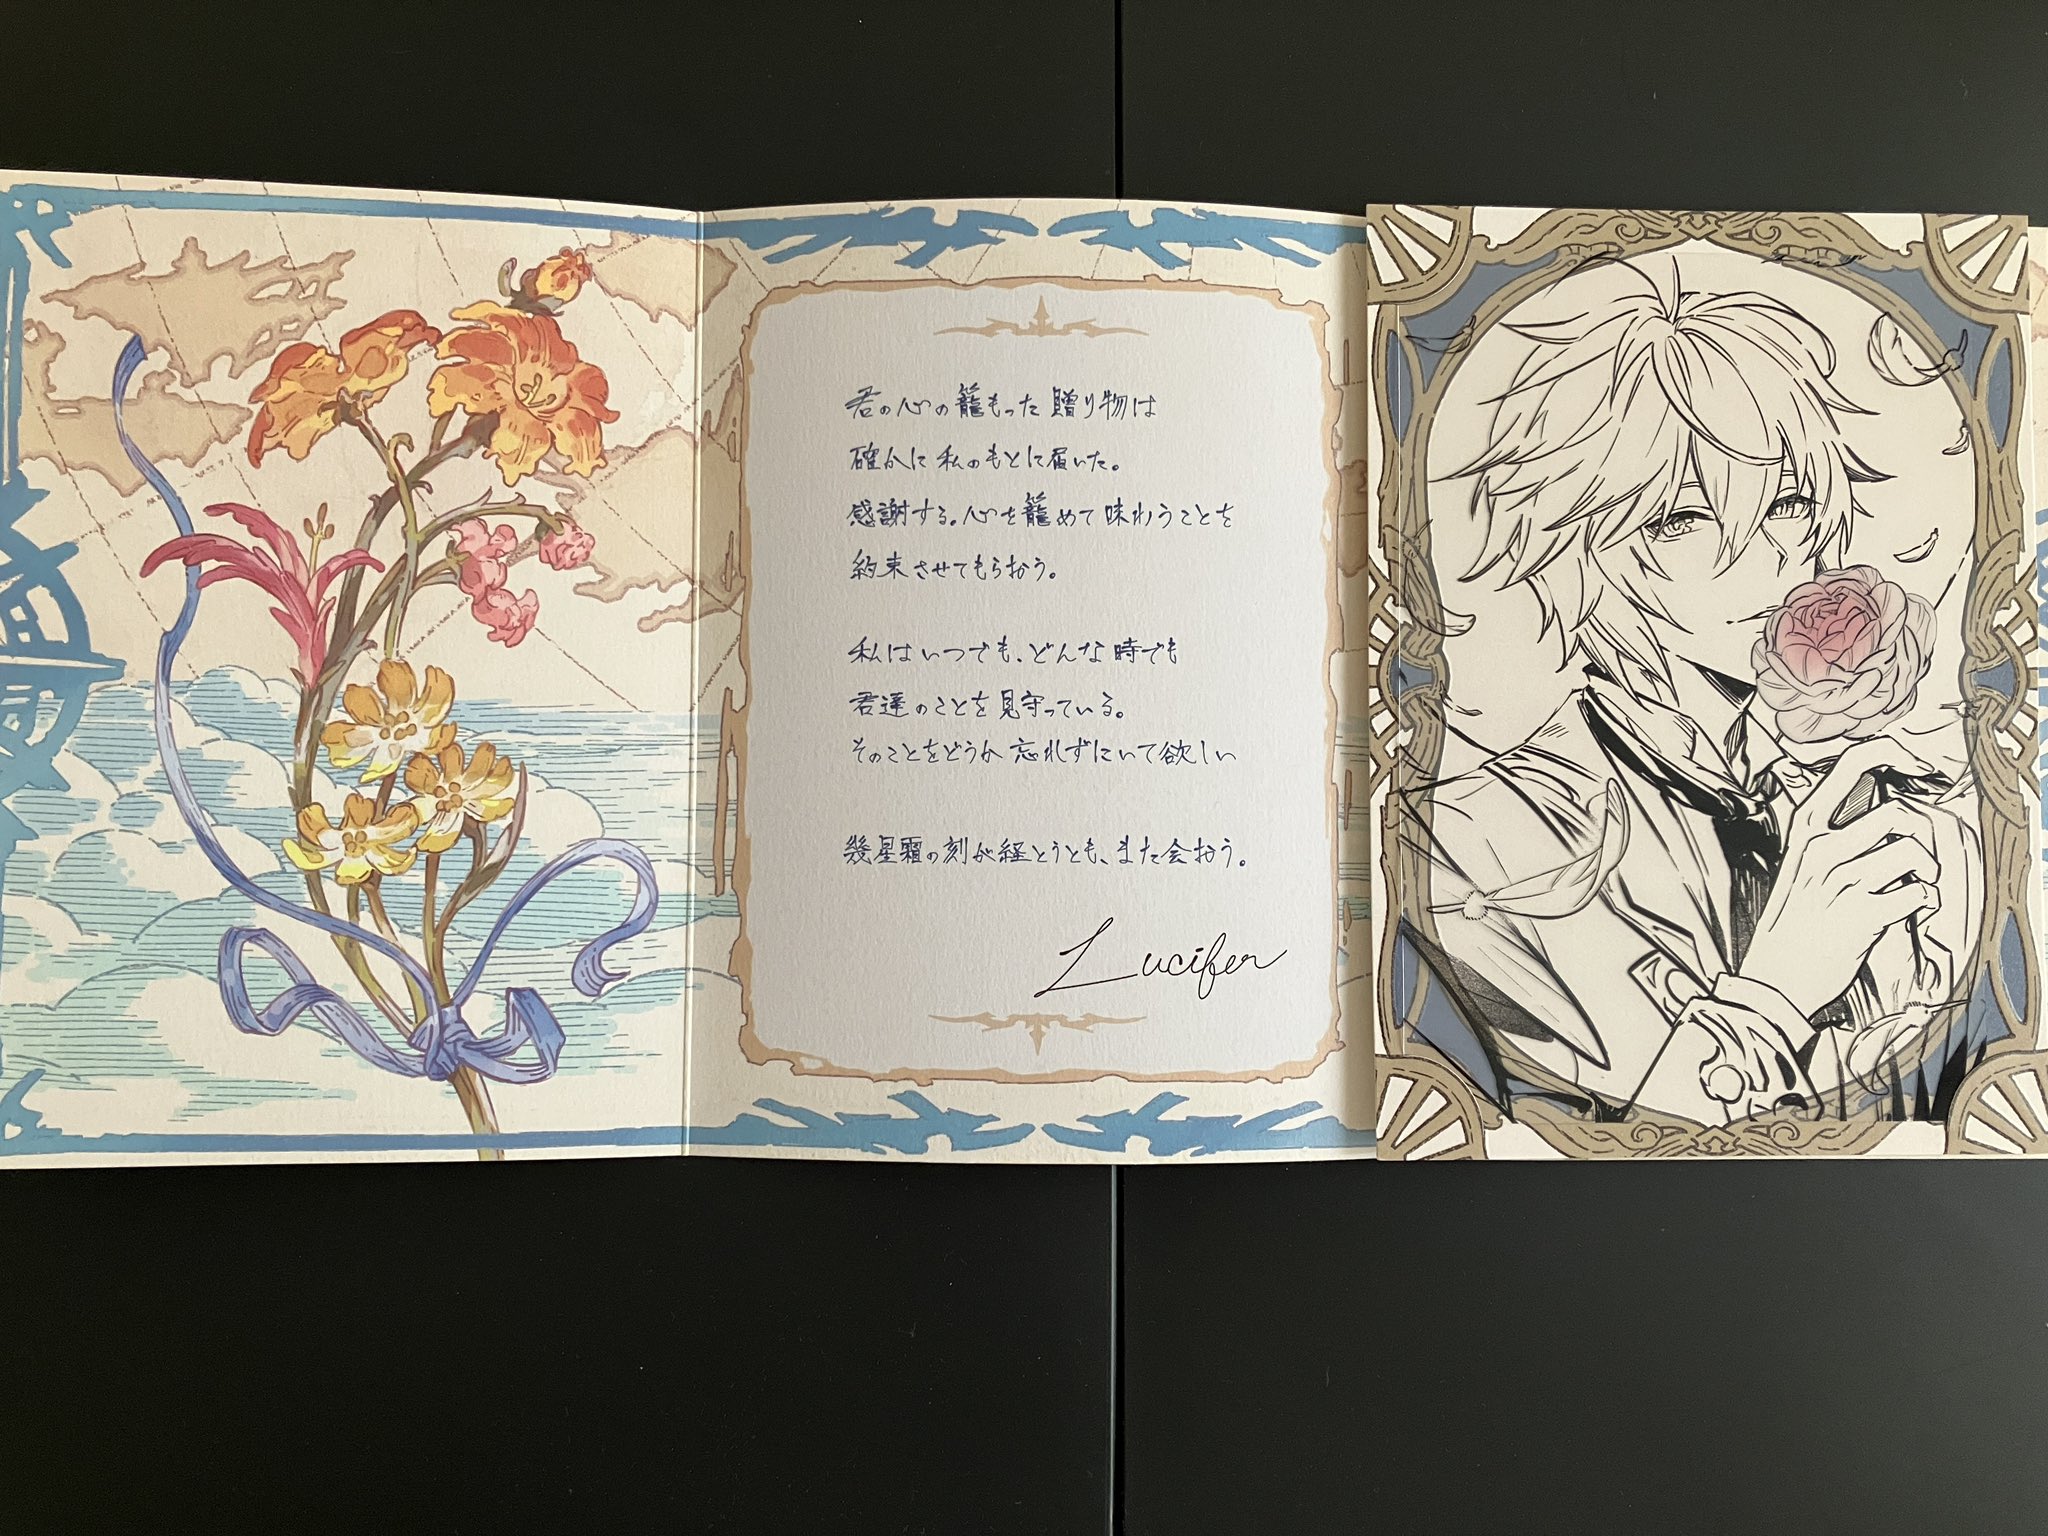 君の心の籠もった贈り物は
確かに私のもとに届いた。
感謝する。心を籠めて味わうことを
約束させてもらおう。
私はいつでも、どんな時でも
君達のことを見守っている。
そのことをどうか忘れずにいて欲しい
幾星霜の刻が経とうとも、また会おう。
Lucifer